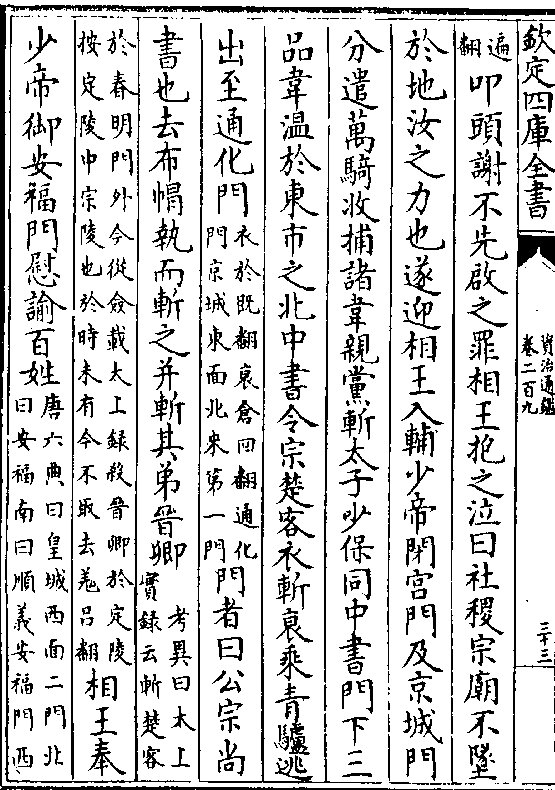 欽定四庫全書
資治通鑑
卷二百九
三十三
遍
翻叩頭謝不先啟之罪相王抱之泣曰社稷宗廟不墜
於地汝之力也遂迎相王入輔少帝閉宫門及京城門
分遣萬騎收捕諸韋親黨斬太子少保同中書門下三
品韋温於東市之北中書令宗楚客衣斬衰乘青驢逃
出至通化門衣於既翻衰倉回翻通化
門京城東面北来第一門門者曰公宗尚
書也去布帽執而斬之并斬其弟晉卿考異曰太上
實録云斬楚客
於春明門外今從僉載太上録殺晉卿於定陵
按定陵中宗陵也於時未有今不取去羌吕翻相王奉
少帝御安福門慰諭百姓唐六典曰皇城西面二門北
曰安福南曰順義安福門西